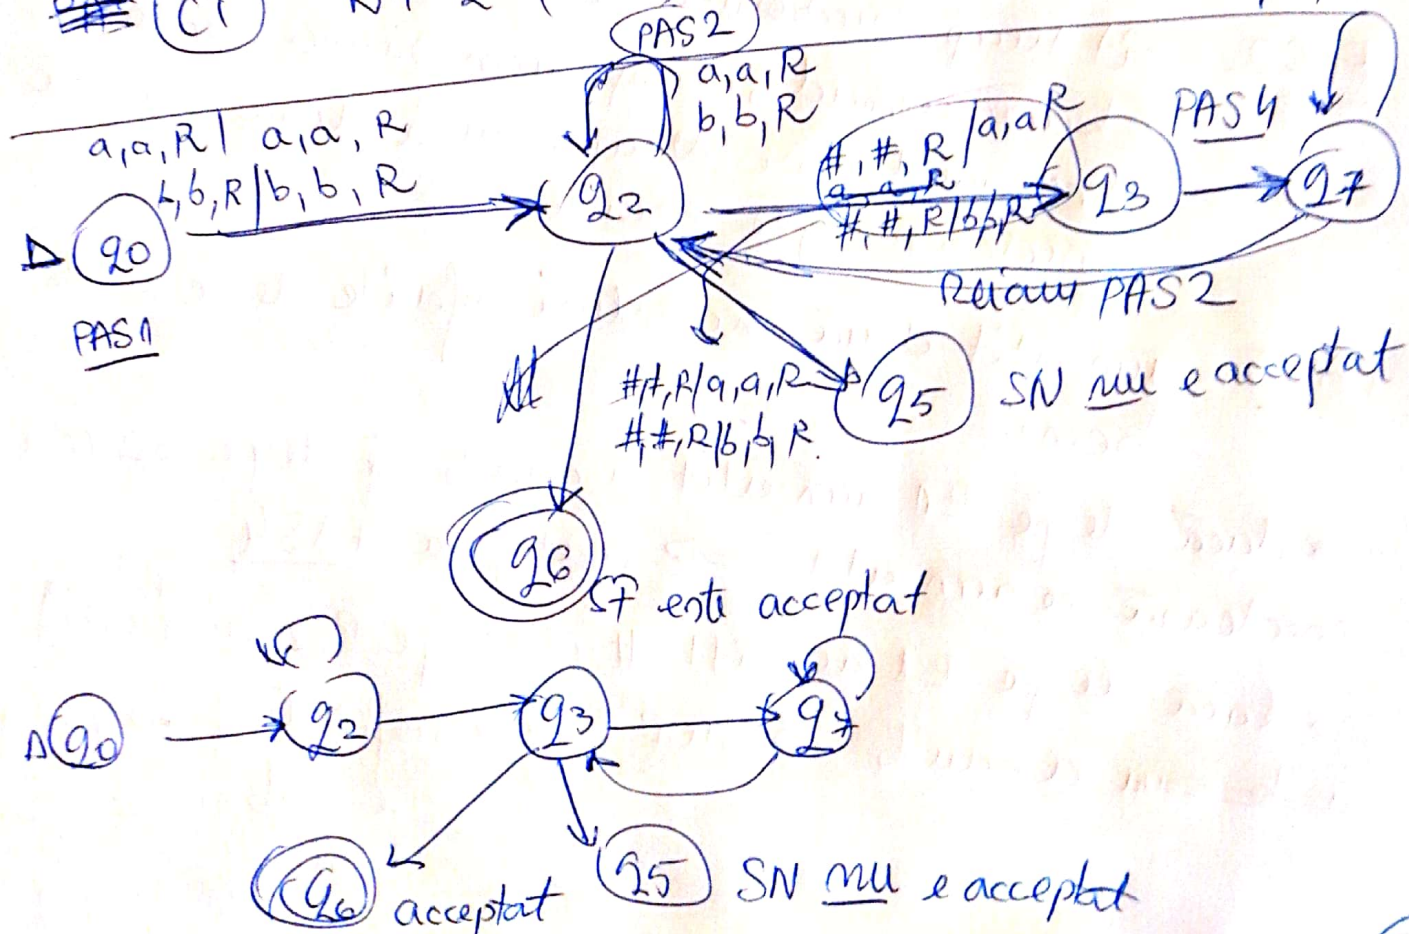 C1
PAS2
a,a,R
b,b,R
a,a,R | a,a,R
b,b,R | b,b,R
#,#,R / a,a R
a a, R
#,#,R / b,b,R
PAS4
q0
q2
q3
q7
PAS1
Reiau PAS2
#,#,R / a,a,R
#,#,R / b,b,R.
q5
SN nu e acceptat
q6
SF este acceptat
q0
q2
q3
q7
q6
acceptat
q5
SN nu e acceptat